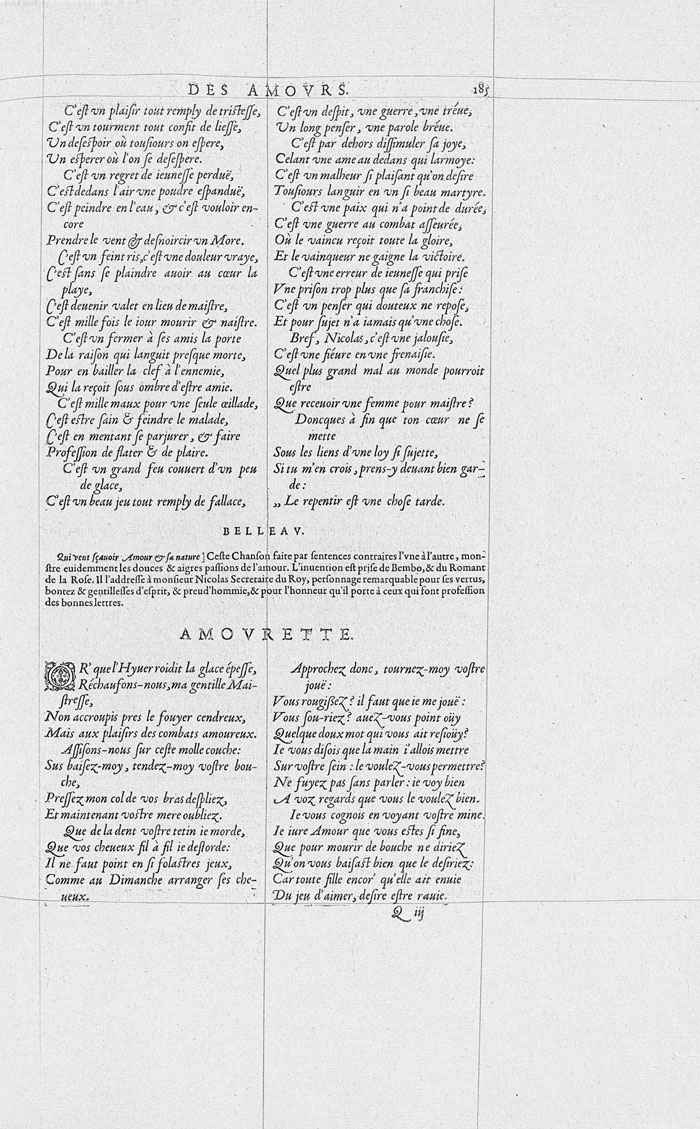 DES AMOVRS.
185
C'eſt vn plaiſir tout remply de triſteſſe,
C'eſt vn tourment tout confit de lieſſe,
Vn deſeſpoir où touſiours on eſpere,
Vn eſperer où l'on ſe deſeſpere.
C'eſt vn regret de ieuneſſe perduë,
C'eſt dedans l'air vne poudre eſpanduë,
C'eſt peindre en l'eau, & c'eſt vouloir en-
core
Prendre le vent & deſnoircir vn More.
C'eſt vn feint ris, c'eſt vne douleur vraye,
C'eſt ſans ſe plaindre auoir au cœur la
playe,
C'eſt deuenir valet en lieu de maiſtre,
C'eſt mille fois le iour mourir & naiſtre.
C'eſt vn fermer à ſes amis la porte
De la raiſon qui languit preſque morte,
Pour en bailler la clef à l'ennemie,
Qui la reçoit ſous ombre d'eſtre amie.
C'eſt mille maux pour vne ſeule œillade,
C'eſt eſtre ſain & feindre le malade,
C'eſt en mentant ſe parjurer, & faire
Profeſſion de flater & de plaire.
C'eſt vn grand feu couuert d'vn peu
de glace,
C'eſt vn beau jeu tout remply de fallace,
C'eſt vn deſpit, vne guerre, vne tréue,
Vn long penſer, vne parole bréue.
C'eſt par dehors diſſimuler ſa joye,
Celant vne ame au dedans qui larmoye:
C'eſt vn malheur ſi plaiſant qu'on deſire
Touſiours languir en vn ſi beau martyre.
C'eſt vne paix qui n'a point de durée,
C'eſt vne guerre au combat aſſeurée,
Où le vaincu reçoit toute la gloire,
Et le vainqueur ne gaigne la victoire.
C'eſt vne erreur de ieuneſſe qui priſe
Vne priſon trop plus que ſa franchiſe:
C'eſt vn penſer qui douteux ne repoſe,
Et pour ſujet n'a iamais qu'vne choſe.
Bref, Nicolas, c'eſt vne jalouſie,
C'eſt vne fiéure en vne frenaiſie.
Quel plus grand mal au monde pourroit
eſtre
Que receuoir vne femme pour maiſtre?
Doncques à fin que ton cœur ne ſe
mette
Sous les liens d'vne loy ſi ſujette,
Si tu m'en crois, prens-y deuant bien gar-
de:
„ Le repentir eſt vne choſe tarde.
BELLEAV.
Qui veut ſçauoir Amour & ſa nature] Ceſte Chanſon faite par ſentences contraires l'vne à l'autre, mon-
ſtre euidemment les douces & aigres paſſions de l'amour. L'inuention eſt priſe de Bembo, & du Romant
de la Roſe. Il l'addreſſe à monſieur Nicolas Secretaire du Roy, perſonnage remarquable pour ſes vertus,
bontez & gentilleſſes d'eſprit, & preud'hommie, & pour l'honneur qu'il porte à ceux qui font profeſſion
des bonnes lettres.
AMOVRETTE.
OR' que l'Hyuer roidit la glace épeſſe,
Réchaufons-nous, ma gentille Mai-
ſtreſſe,
Non accroupis pres le fouyer cendreux,
Mais aux plaiſirs des combats amoureux.
Aſſiſons-nous ſur ceſte molle couche:
Sus baiſez-moy, tendez-moy voſtre bou-
che,
Preſſez mon col de vos bras deſpliez,
Et maintenant voſtre mere oubliez.
Que de la dent voſtre tetin ie morde,
Que vos cheueux fil à fil ie deſtorde:
Il ne faut point en ſi folaſtres jeux,
Comme au Dimanche arranger ſes che-
ueux.
Approchez donc, tournez-moy voſtre
jouë:
Vous rougiſſez? il faut que ie me jouë:
Vous ſou-riez? auez-vous point oüy
Quelque doux mot qui vous ait reſioüy?
Ie vous diſois que la main i'allois mettre
Sur voſtre ſein: le voulez-vous permettre?
Ne fuyez pas ſans parler: ie voy bien
A voz regards que vous le voulez bien.
Ie vous cognois en voyant voſtre mine.
Ie iure Amour que vous eſtes ſi fine,
Que pour mourir de bouche ne diriez
Qu'on vous baiſaſt bien que le deſiriez:
Car toute fille encor' qu'elle ait enuie
Du jeu d'aimer, deſire eſtre rauie.
Q iij